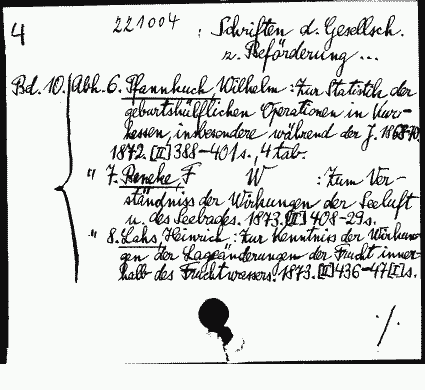 4 221004 : Schriften d. Gesellsch.
z. Beförderung ...
Bd. 10. Abh. 6. Pfannkuch, Wilhelm : Zur Statistik der
geburtshülflichen Operationen in Kur-
hessen, insbesondere während der J. 1868-70,
1872. [II] 388-401 S., 4 Tab.
" 7. Beneke, F W : Zum Ver-
ständniss der Wirkungen der Seeluft
u. des Seebades. 1873. [II] 408-29 S.
" 8. Lahs, Heinrich : Zur Kenntniss der Wirkun-
gen der Lageänderungen der Frucht inner-
halb des Fruchtwassers. 1873. [II] 436-47 [I] S.
./.